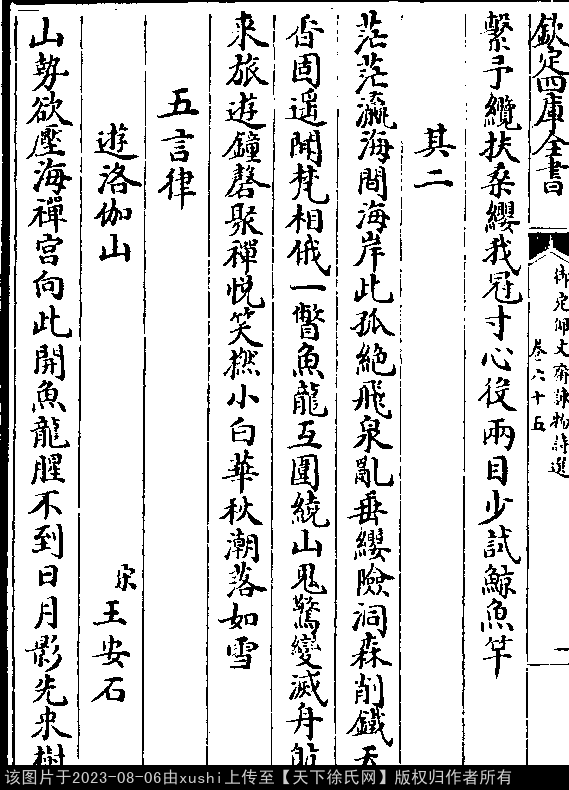 欽定四庫全書
御定佩文齋詠物詩選
卷六十五
繫予纜扶桑纓我冠寸心役兩目少試鯨魚竿
其二
茫茫瀛海間海岸此孤絶飛泉亂垂纓險洞森削鐵天
香固遥聞梵相俄一瞥魚龍互圍繞山鬼驚變滅舟航
來旅遊鐘磬聚禪悦笑撚小白華秋潮落如雪
五言律
遊洛伽山
宋 王安石
山勢欲壓海禪宮向此開魚龍腥不到日月影先來樹
该图片于2023-08-06由xushi上传至【天下徐氏网】版权归作者所有